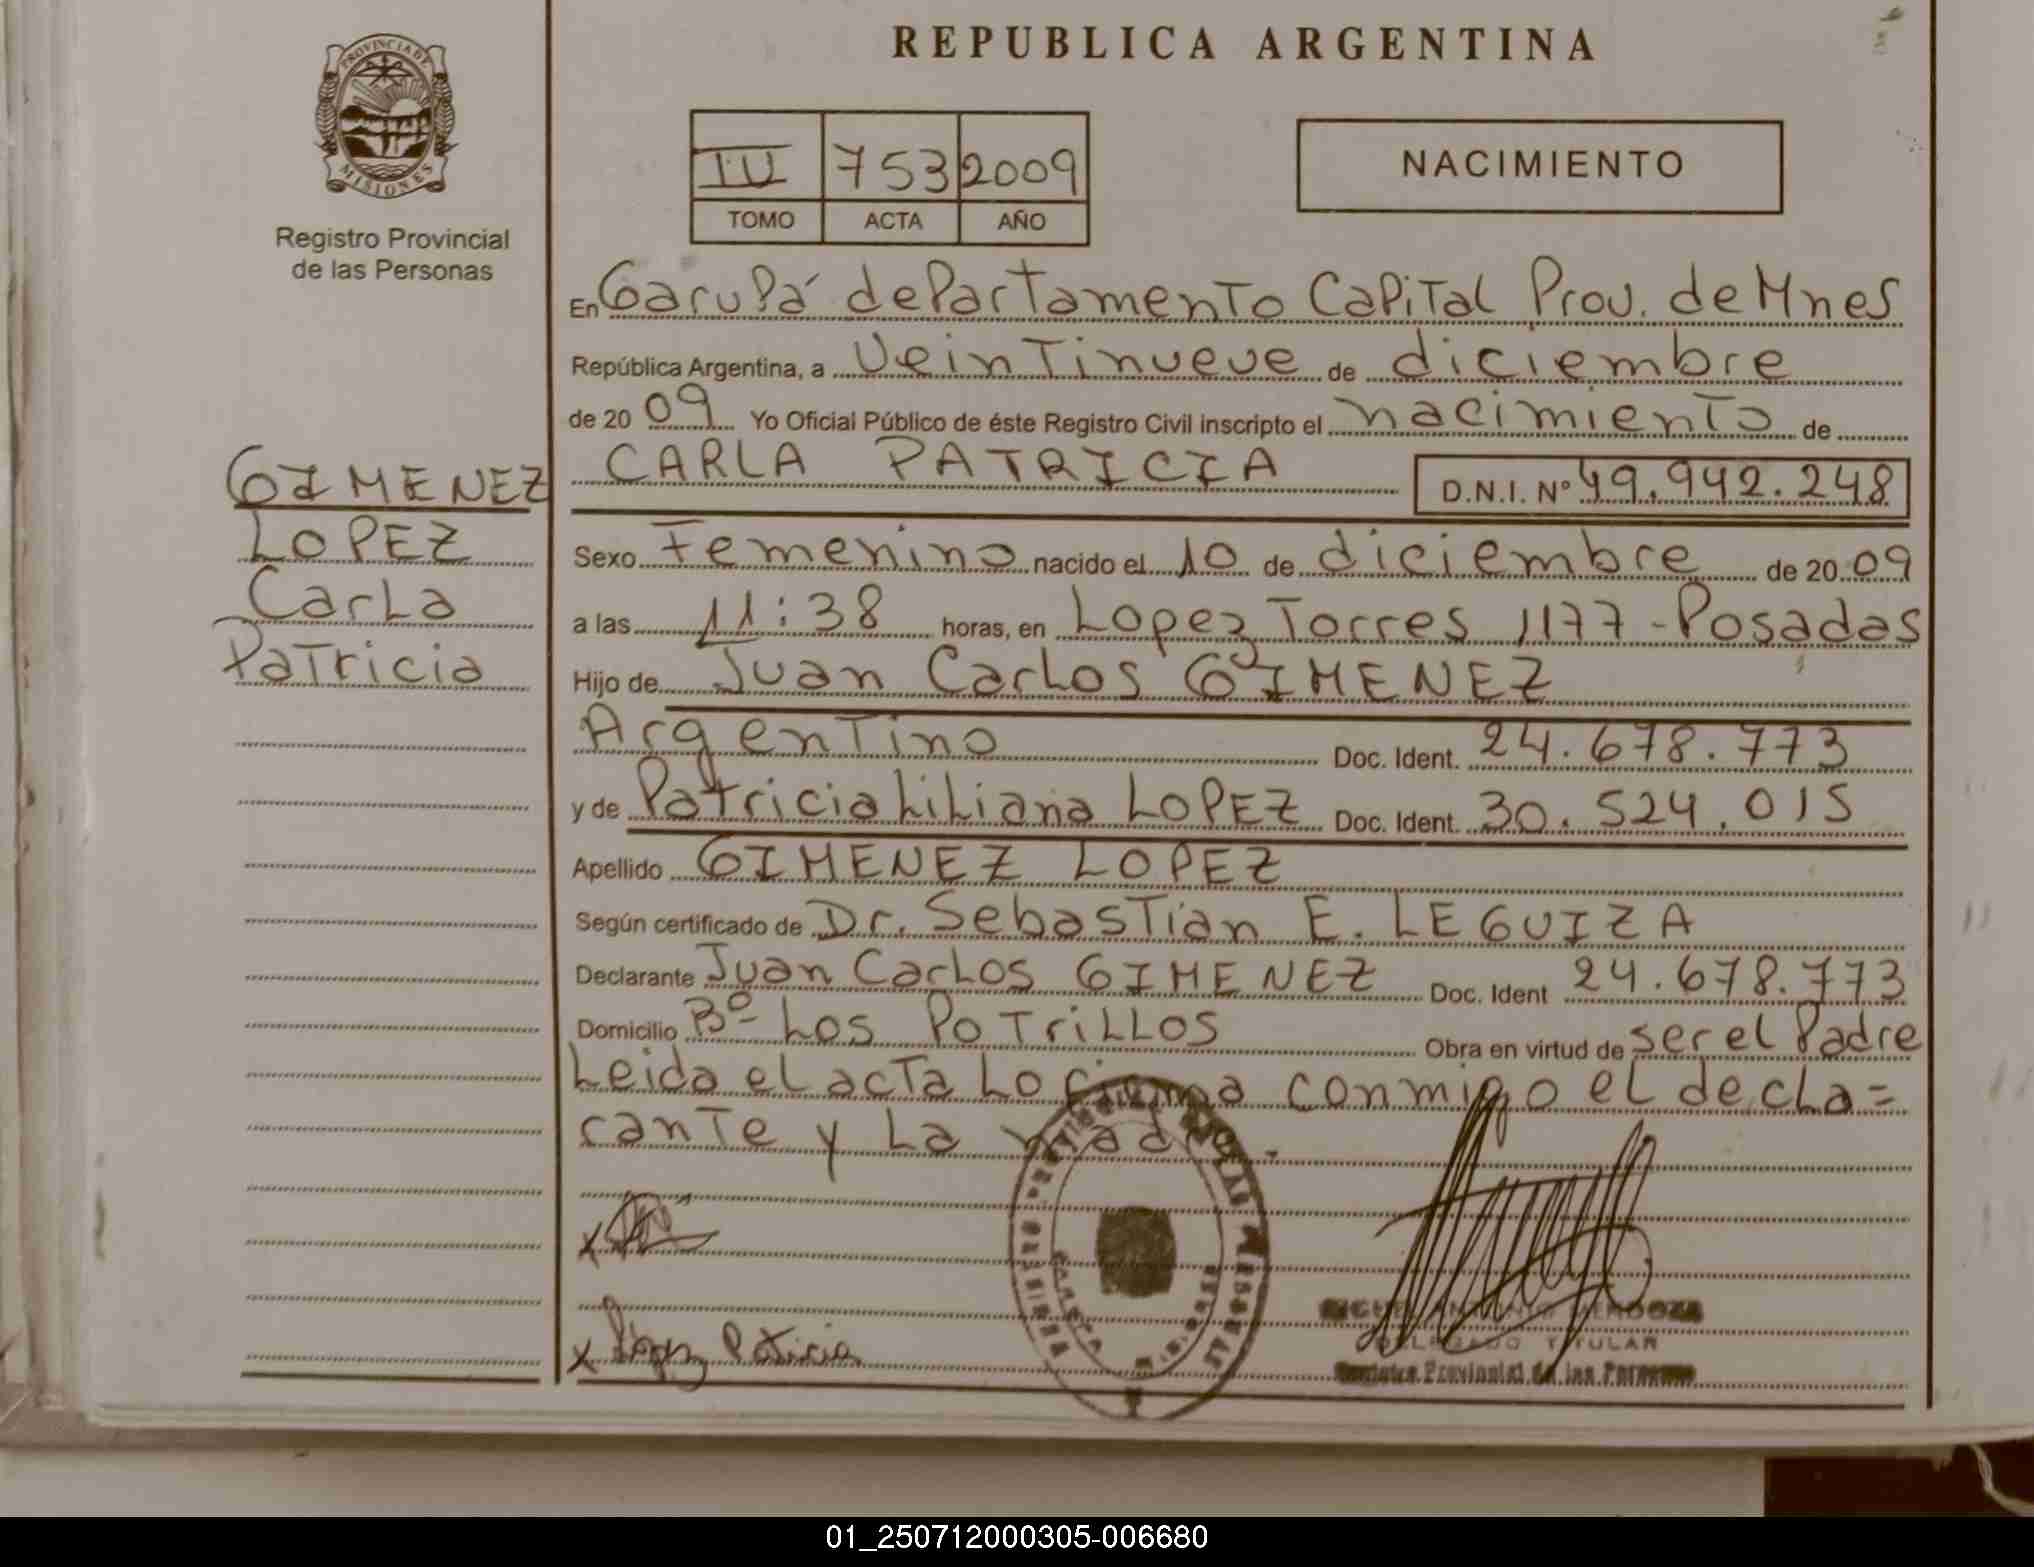 REPUBLICA ARGENTINA
PROVINCIA DE
MISIONES
Registro Provincial
de las Personas
753 2009
TOMO ACTA AÑO
NACIMIENTO
En Garupá departamento Capital Prov. de Mnes
República Argentina, a veintinueve de diciembre
de 2009 Yo Oficial Público de éste Registro Civil inscripto el nacimiento de
CARLA PATRICIA D.N.I. Nº 49.942.248
GIMENEZ
LOPEZ
Carla
Patricia
Sexo Femenino nacido el 10 de diciembre de 2009
a las 11:38 horas, en Lopez Torres 1177 - Posadas
Hijo de Juan Carlos GIMENEZ
Argentino Doc. Ident. 24.678.773
y de Patricia Liliana LOPEZ Doc. Ident. 30.524.015
Apellido GIMENEZ LOPEZ
Según certificado de Dr. Sebastian E. LEGUIZA
Declarante Juan Carlos GIMENEZ Doc. Ident 24.678.773
Domicilio Bº Los Potrillos Obra en virtud de ser el Padre
Leida el acta lo firma conmigo el decla=
rante y la madre.
x
x López Patricia
ANTONIO MENDOZA
DELEGADO TITULAR
Registro Provincial de las Personas
01_250712000305-006680